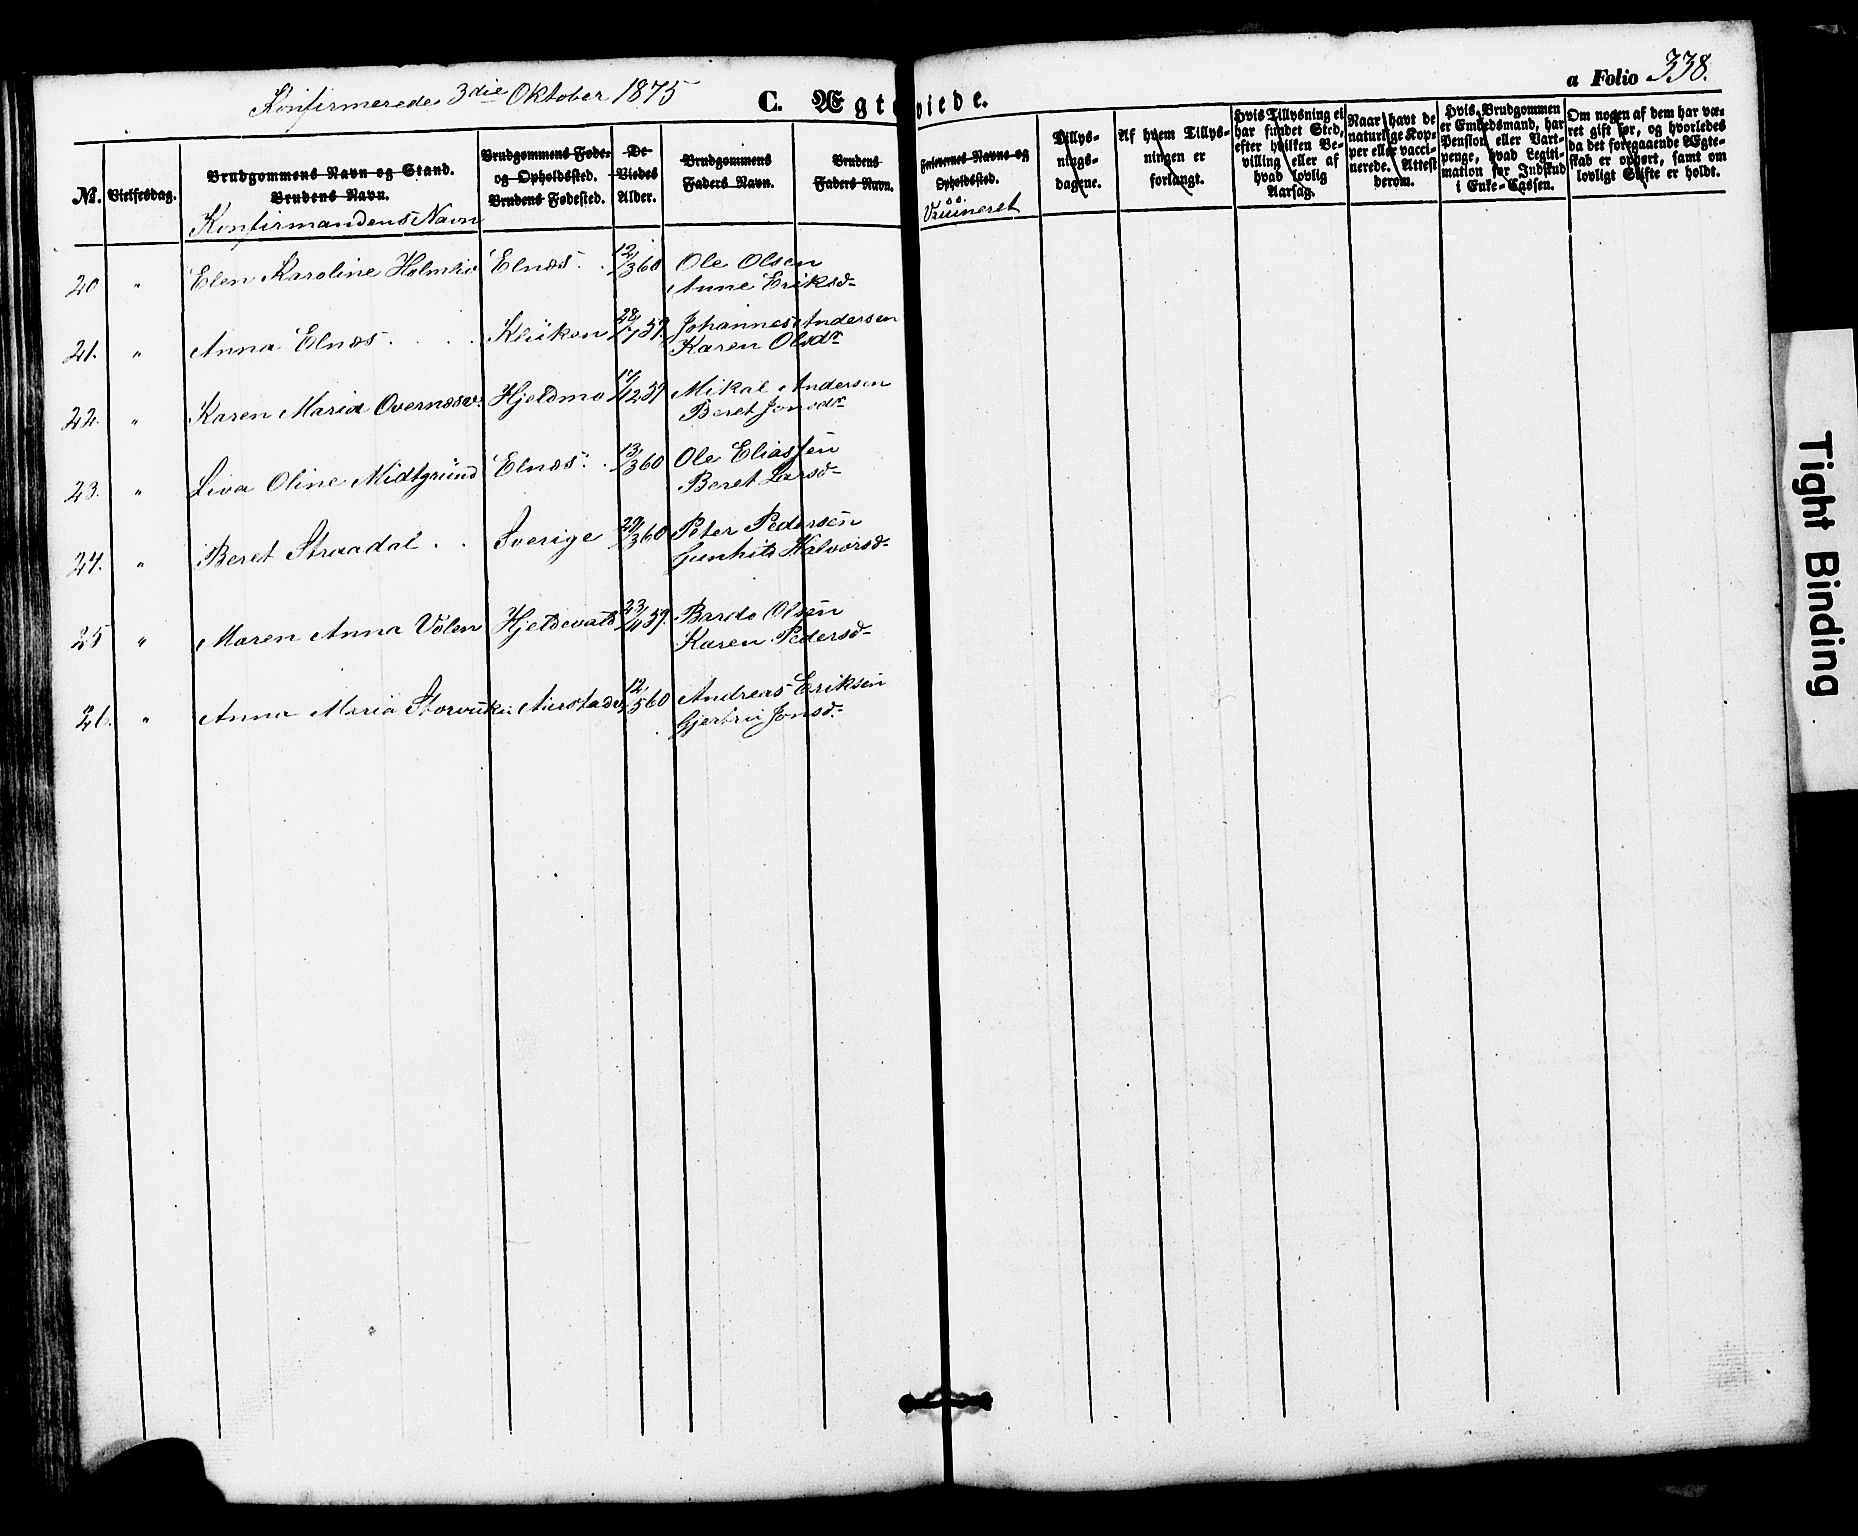 Konfirmerede 3die Oktober 1875
C. Ægteviede.
a Folio 338.
№. Vielsesdag. Brudgommens Navn og Stand. Brudens Navn. Konfirmandens Navn
Brudgommens Føde- og Opholdssted. Brudens Fødested.
De Viedes Alder.
Brudgommens Faders Navn.
Brudens Faders Navn.
Forlovernes Navne og Opholdssted.
Tillys- nings- dagene.
Af hvem Tillys- ningen er forlangt.
Hvis Tillysning ei har fundet Sted, efter hvilken Be- villing eller af hvad lovlig Aarsag.
Naar havt de naturlige Kop- per eller vacci- nerede. Attest derom.
Hvis Brudgommen er Embedsmand, har Pension eller Vart- penge, hvad Legiti- mation for Indskud i Enke-Cassen.
Om nogen af dem har væ- ret gift før, og hvorledes da det foregaaende Ægte- skab er ophørt, samt om lovligt Skifte er holdt.
20 " Elen Karoline Elnæs. 12/3 60 Ole Olsen
Anne Eriksd-
21. " Anna Elnæs 59. Johannes Andersen
Karen Olsdr
22. " Karen Maria Hjeldmo 12 59 Mikal Andersen
Beret Jonsdr
23. " Oline Midtgrund Elnæs. 13/3 60 Ole Eliassen
Beret Larsd-
24. " Beret Straadal Sverige 29/3 60 Peter Pedersen
Gunhild Halvorsd-
25 " Maren Anna 23/11 59. Bardo Olsen
Karen Pedersd-
26. " Anna Maria 12/5 60 Andreas Eriksen
Jonsd-
Tight Binding